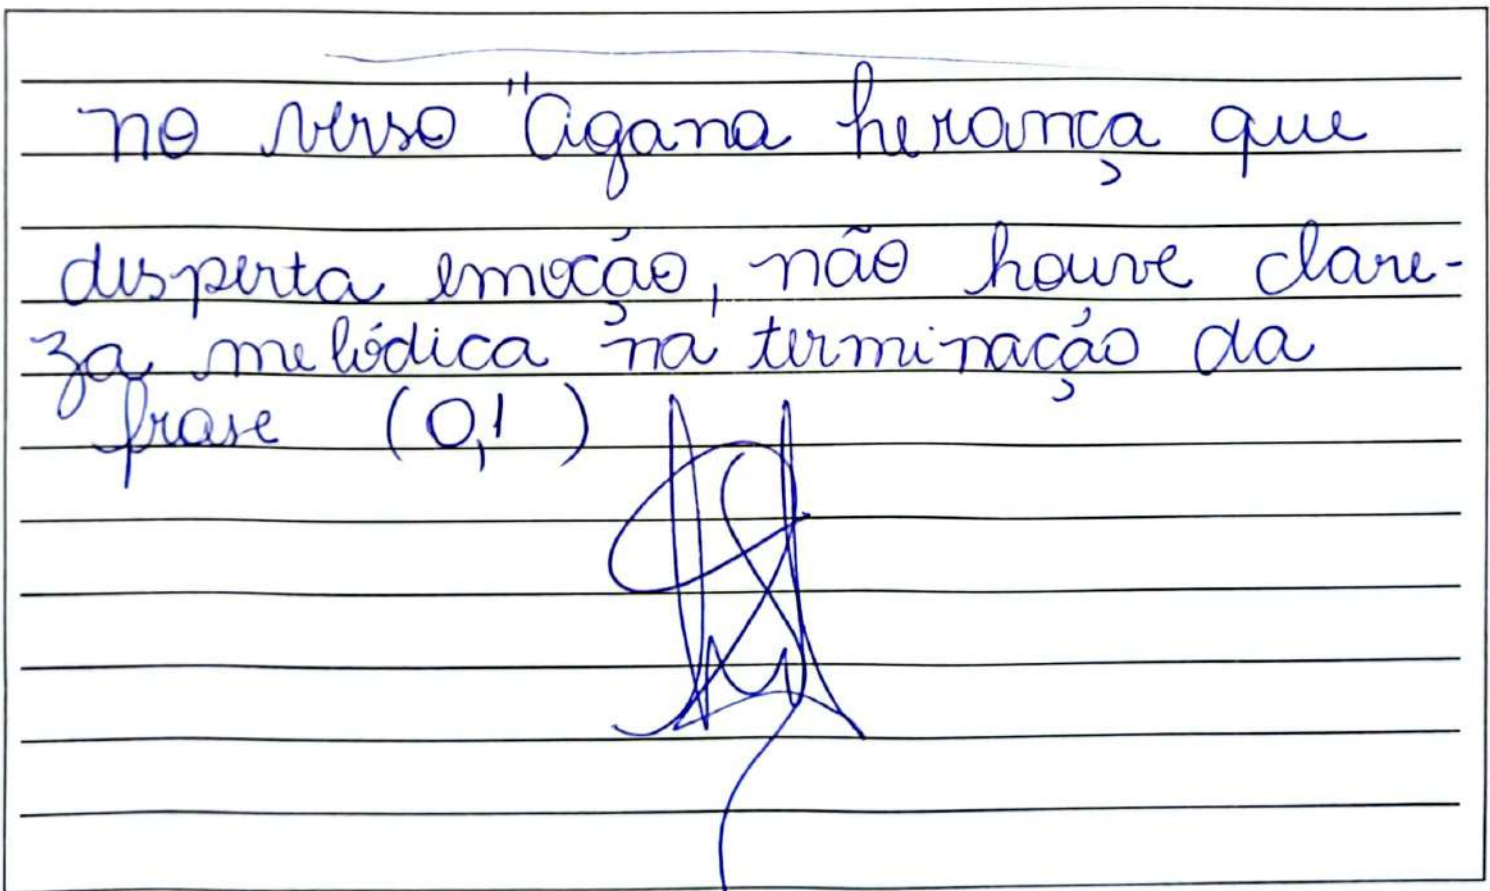 no verso "Agana herança que
desperta emoção, não houve clare-
za melódica na terminação da
frase (0,1)